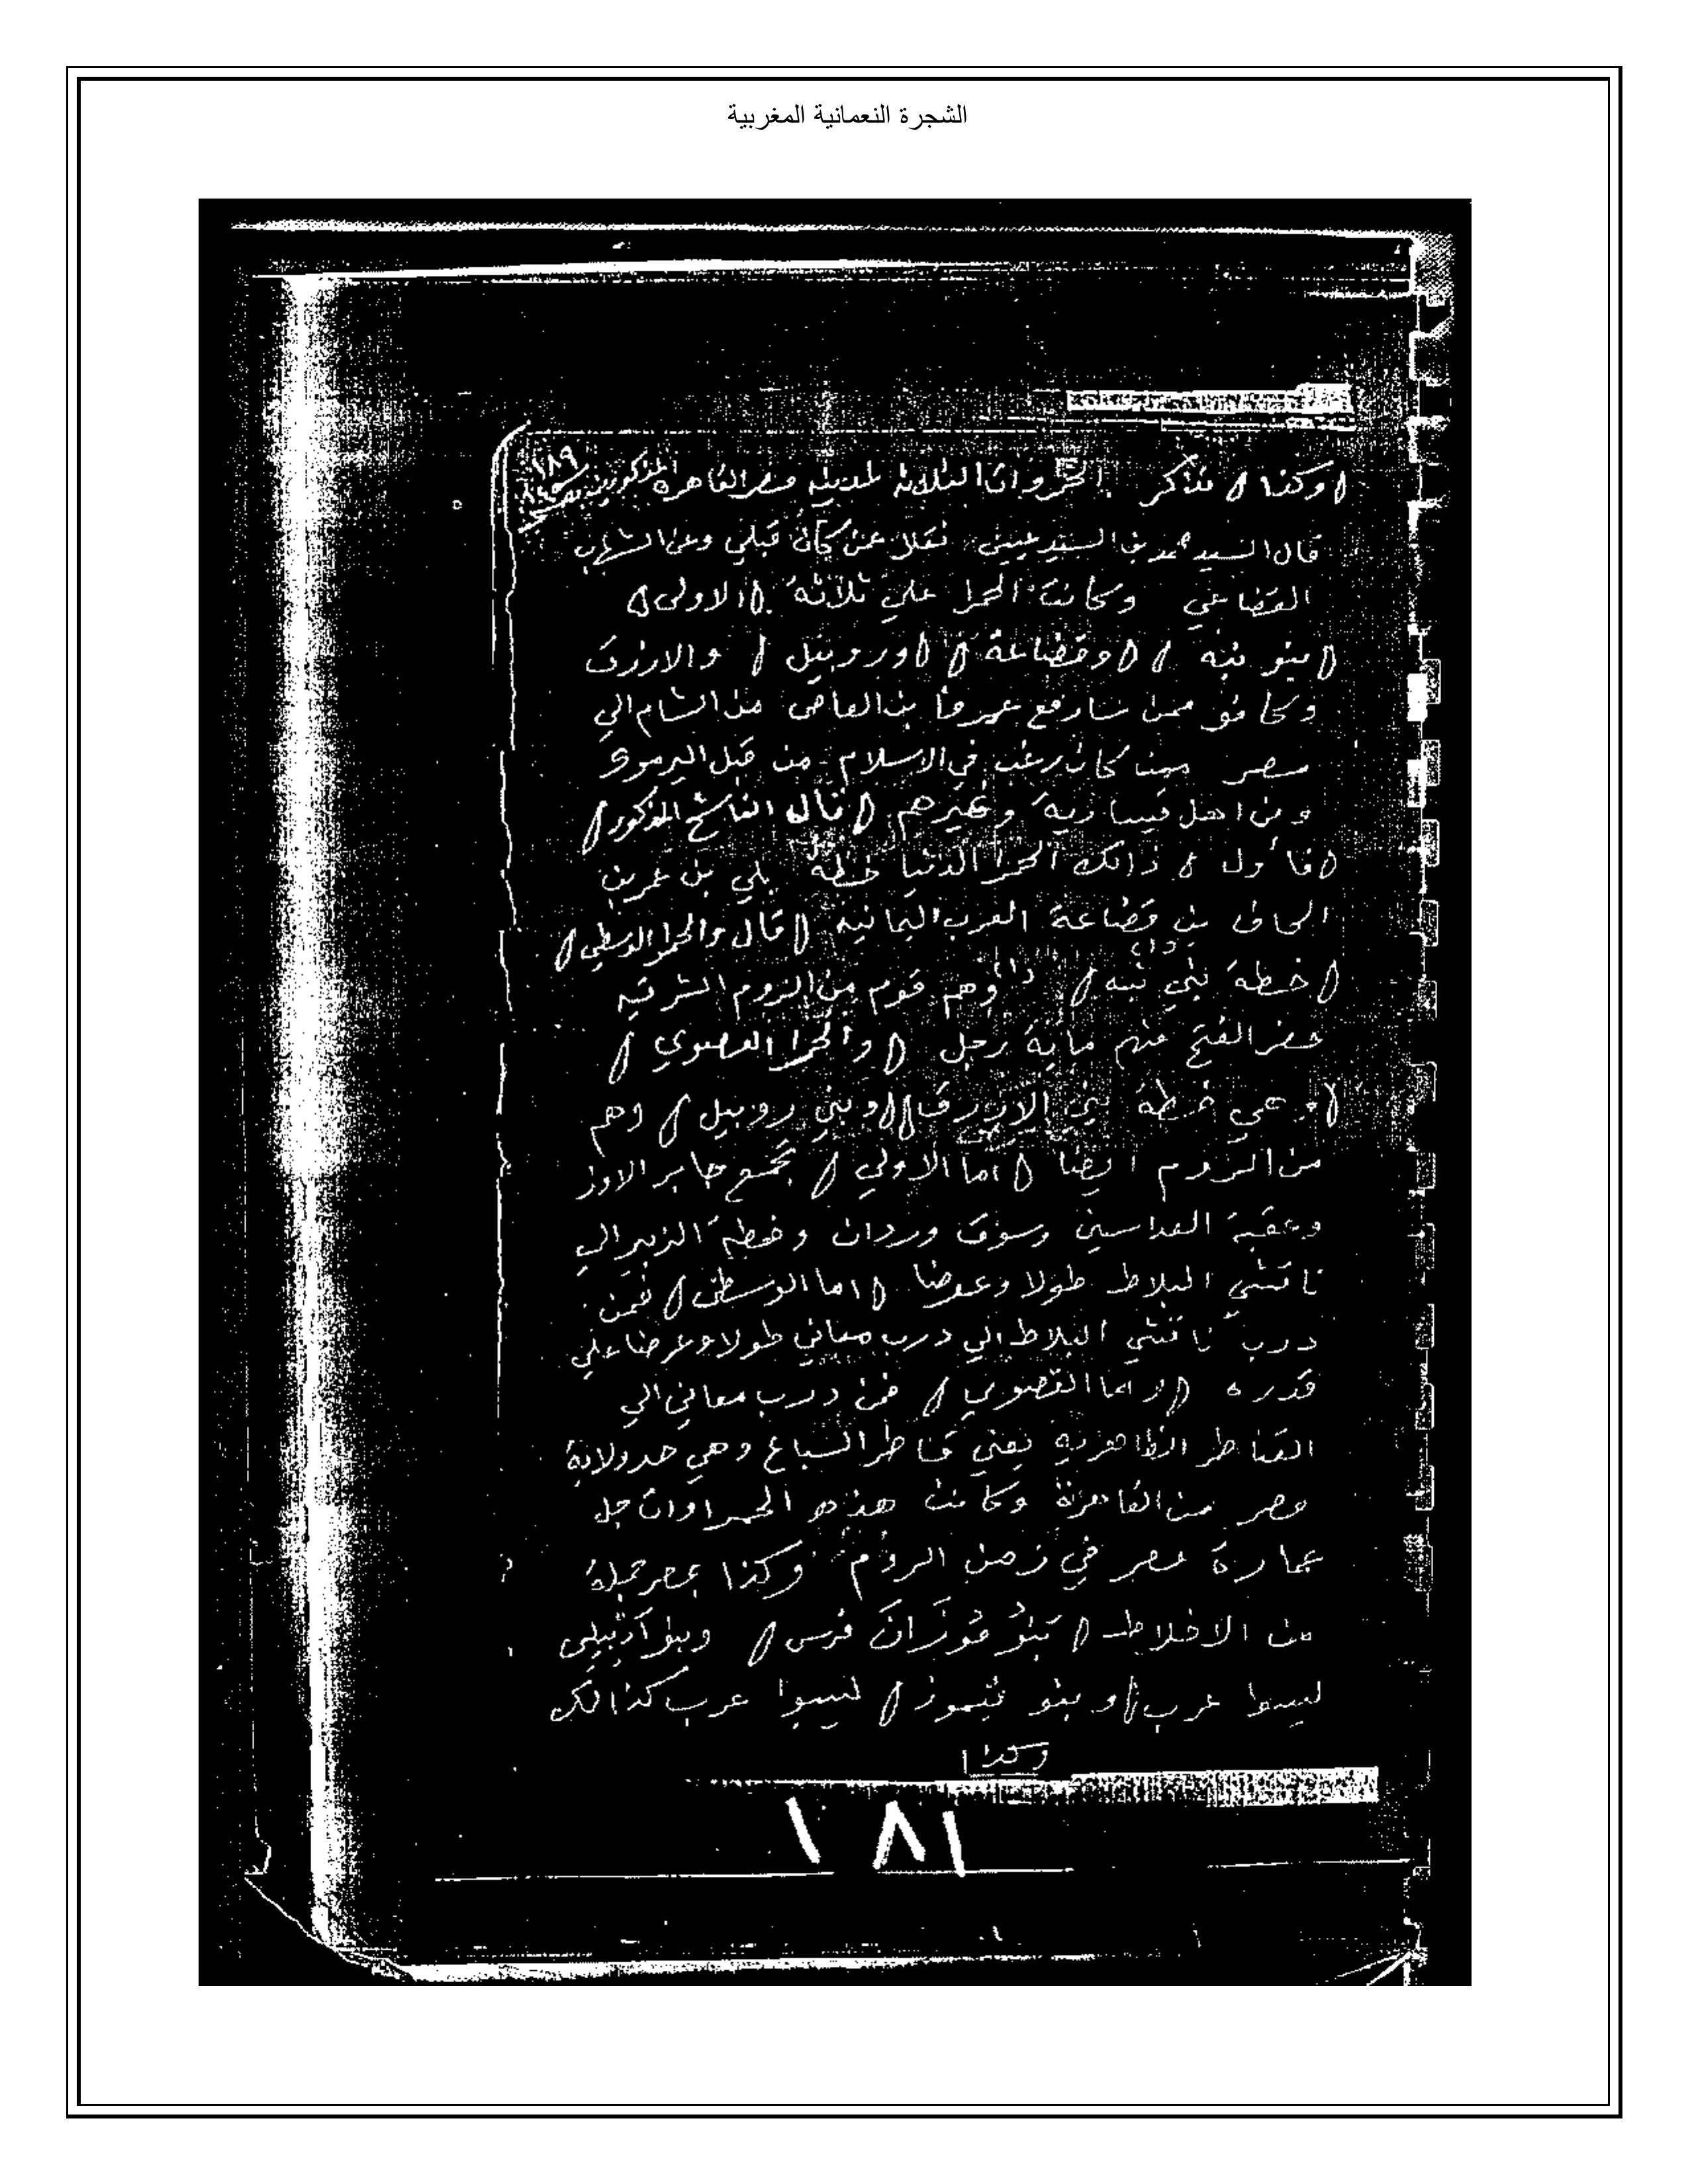 الشجرة النعمانية المغربية
١٨٩
(وكذا) نذكر الحمروات الثلاثة لمدينة مصر القاهره المذكورين
قال السيد محمد بن السيد عيسى نقلا عن كان قبلي وعن الشهاب
القضاعي وكانت الحمرا علي ثلاثة (الاولى)
(بنو نبه) (وقضاعة) (وروبيل) والازرق
وكانو ممن سار مع عمرو بن العاص من الشام الي
مصر ممن كان رغب في الاسلام من قبل اليرموك
ومن اهل قيساريه وغيرهم (قال الناسخ المذكور)
(فأول) ذالك الحمرا الدنيا خطة بلي بن عمر بن
الحاف بن قضاعة العرب اليمانيه (قال والحمرا الوسطي)
(خطة بني نبه) وهم قوم من الروم الشرقيه
حضر الفتح منهم ماية رجل (والحمرا القصوي)
(وهي خطة بني الازرق) (وبني روبيل) وهم
من الروم ايضا (اما الاولي) تجمع جابر الاوز
وعقبة العداسين وسوق وردان وخطة الزبير الي
نا قشي البلاط طولا وعرضا (اما الوسطى) فمن
درب نا قشي البلاط الي درب معاني طولا وعرضا علي
قدره (واما القصوي) فمن درب معاني الي
القناطر الظاهريه يعني قناطر السباع وهي حد ولاية
مصر من القاهرة وكانت هذه الحمراوات جل
عمارة مصر في زمن الروم وكذا بمصر جملة
من الاخلاط (بنو فوزان فرس) وبنو
ليسوا عرب (وبنو) ليسوا عرب كذالك
وكذا
١٨١